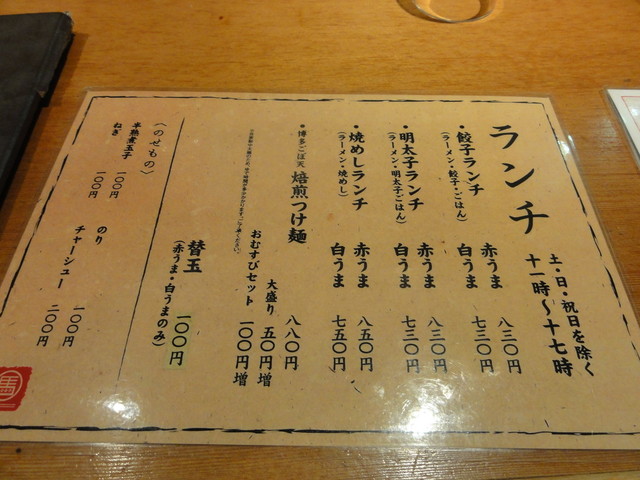 ランチ
土・日・祝日を除く
十一時〜十七時
・餃子ランチ
(ラーメン・餃子・ごはん)
赤うま 八三〇円
白うま 七三〇円
・明太子ランチ
(ラーメン・明太子ごはん)
赤うま 八三〇円
白うま 七三〇円
・焼めしランチ
(ラーメン・焼めし)
赤うま 八五〇円
白うま 七五〇円
・博多ごぼ天 焙煎つけ麺 八八〇円
大盛り 五〇円増
おむすびセット 一〇〇円増
替玉 一〇〇円
(赤うま・白うまのみ)
〈のせもの〉
半熟煮玉子 一〇〇円
ねぎ 一〇〇円
のり 一〇〇円
チャーシュー 二〇〇円